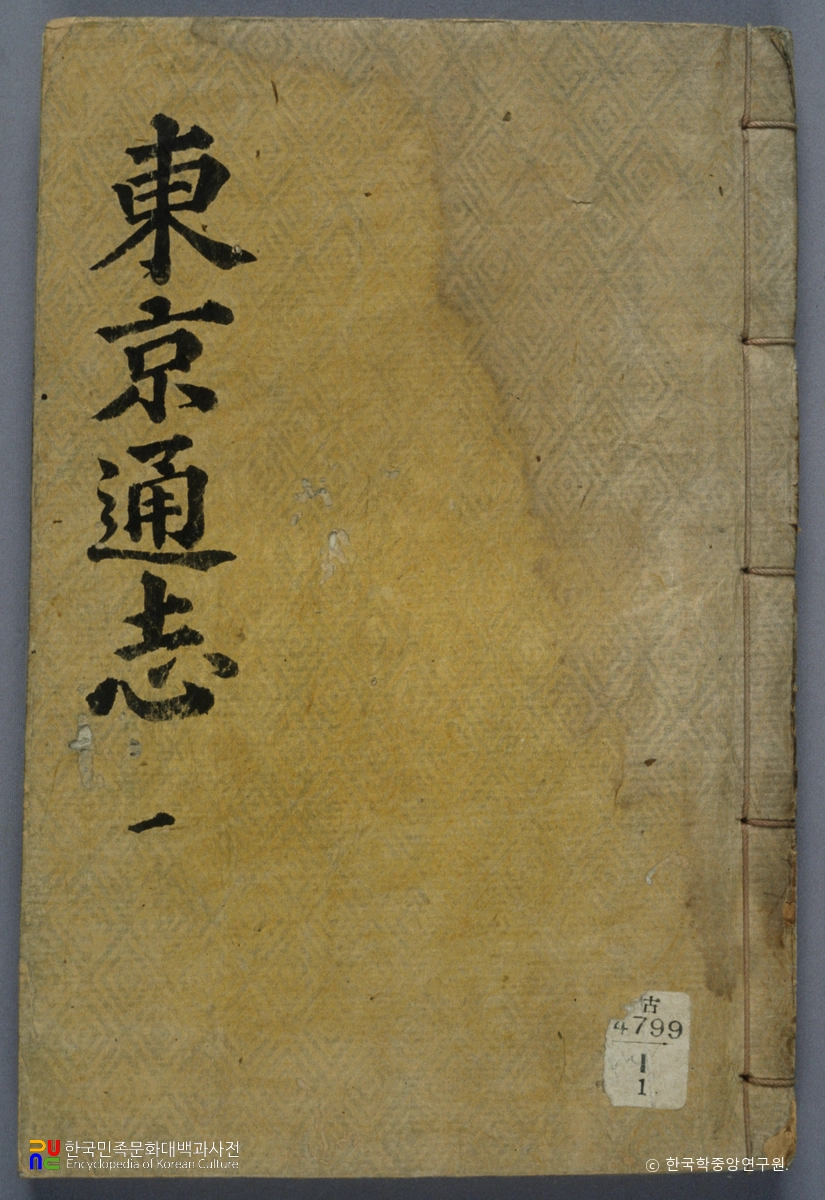 東京通志
一
古
4799
1
1
한국민족문화대백과사전
Encyclopedia of Korean Culture
© 한국학중앙연구원.